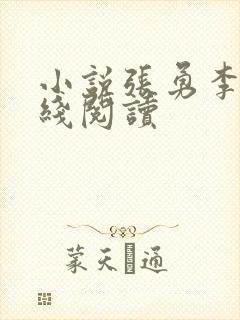 小説張勇李
綫閱讀
蒙天 通